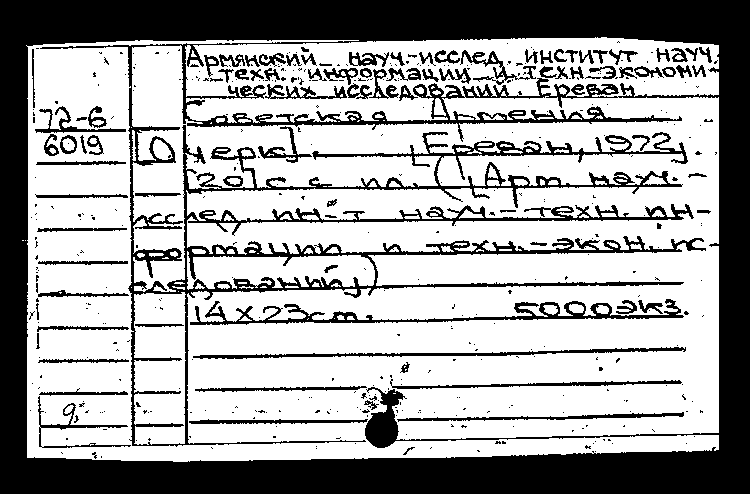 Армянский науч.-исслед. институт науч.
техн. информации и техн.-экономи-
ческих исследований. Ереван
Советская Армения
72-6
6019 [Очерк]. [Ереван, 1972].
[20] с. с ил. ([Арм. науч.-
исслед. ин-т науч.-техн. ин-
формации и техн.-экон. ис-
следований])
14 x 23 cm. 5000 экз.
9.